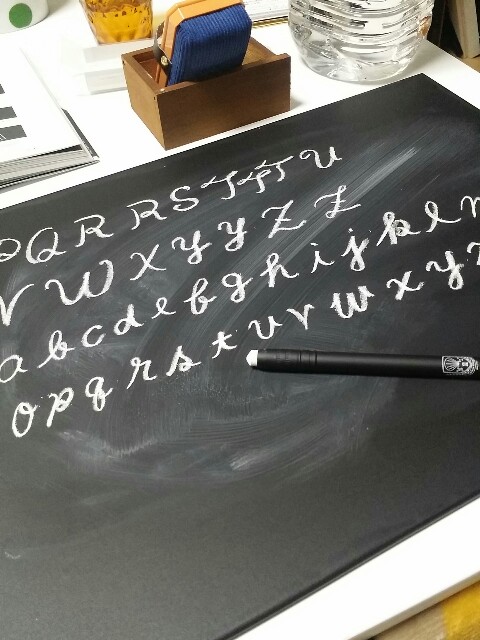 P Q R R S T T T U
V W X Y Y Z Z
a b c d e f g h i j k l m
o p q r s t u v w x y z